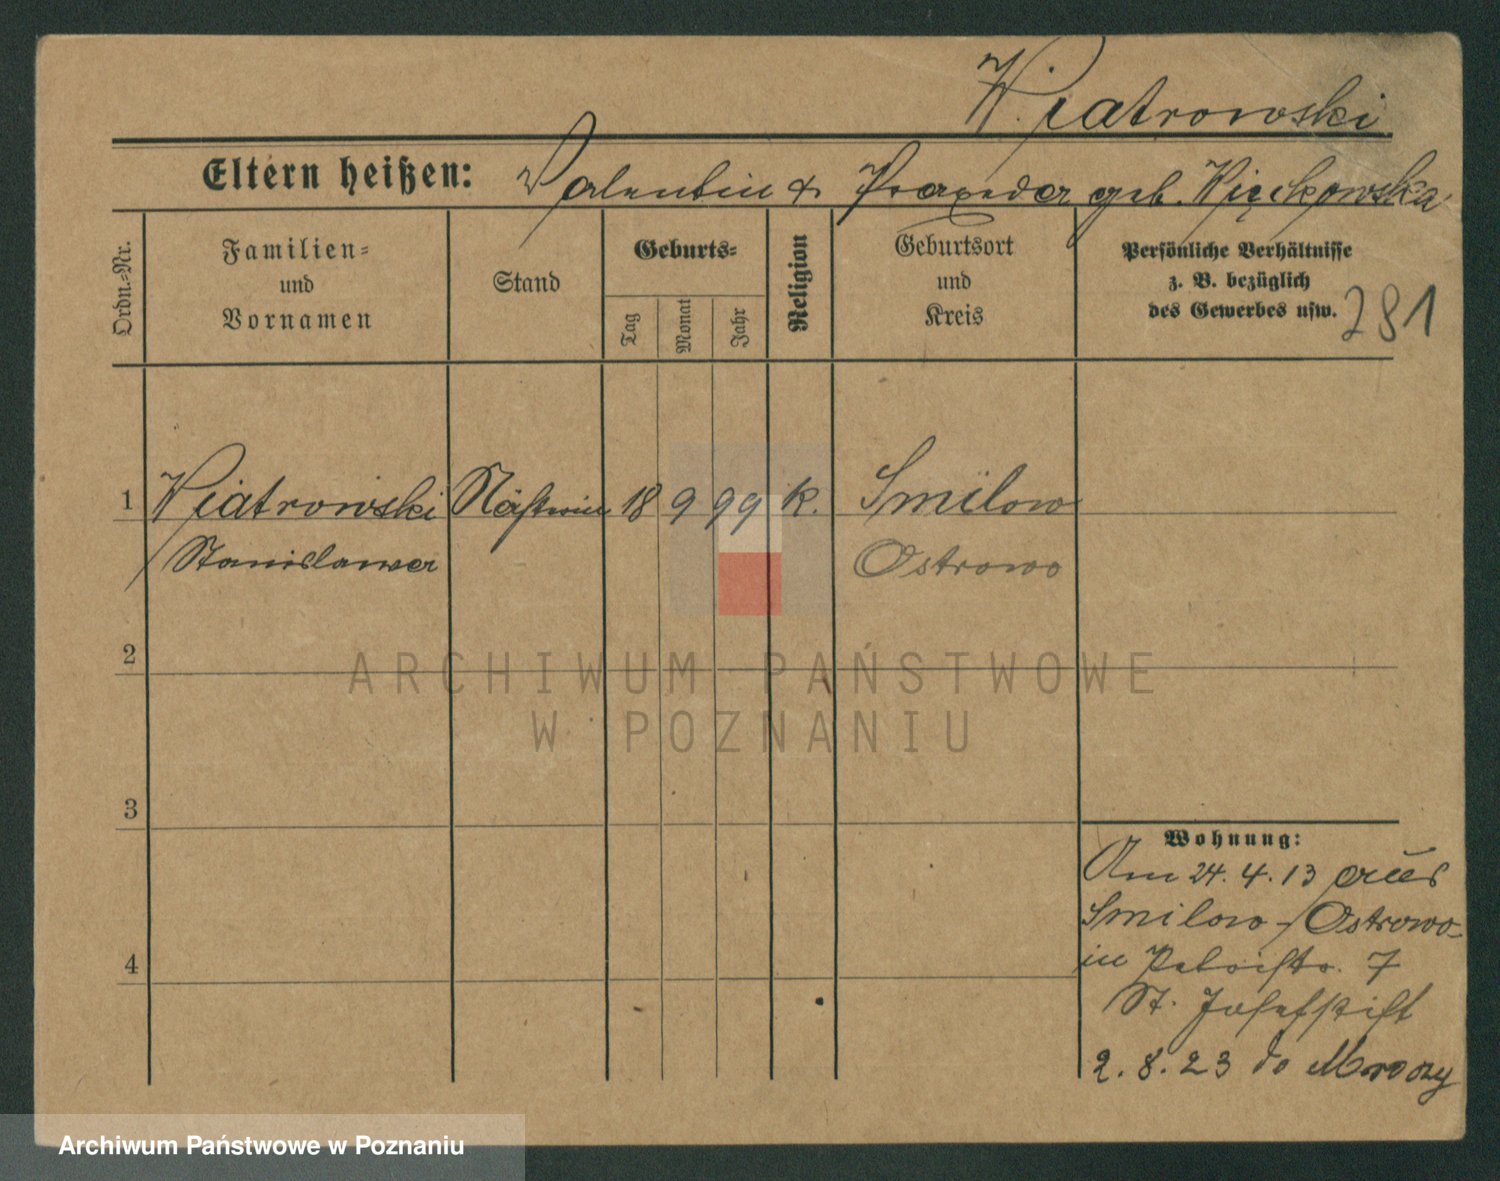 Wiatrowski
Eltern heißen: Valentin & Praxeda geb. Więckowska
Ordn.=Nr.
Familien=
und
Vornamen
Stand
Geburts=
Tag
Monat
Jahr
Religion
Geburtsort
und
Kreis
Persönliche Verhältnisse
z. B. bezüglich
des Gewerbes usw.
281
1 Wiatrowski Näherin 18 9 99 k. Smilow
Stanislawa Ostrowo
2
ARCHIWUM PAŃSTWOWE
W POZNANIU
3
Wohnung:
Am 24.4.13 aus
Smilow-Ostrowo-
in Petristr. 7
St. Josefstift
4
2.8.23 do Mroczy
Archiwum Państwowe w Poznaniu